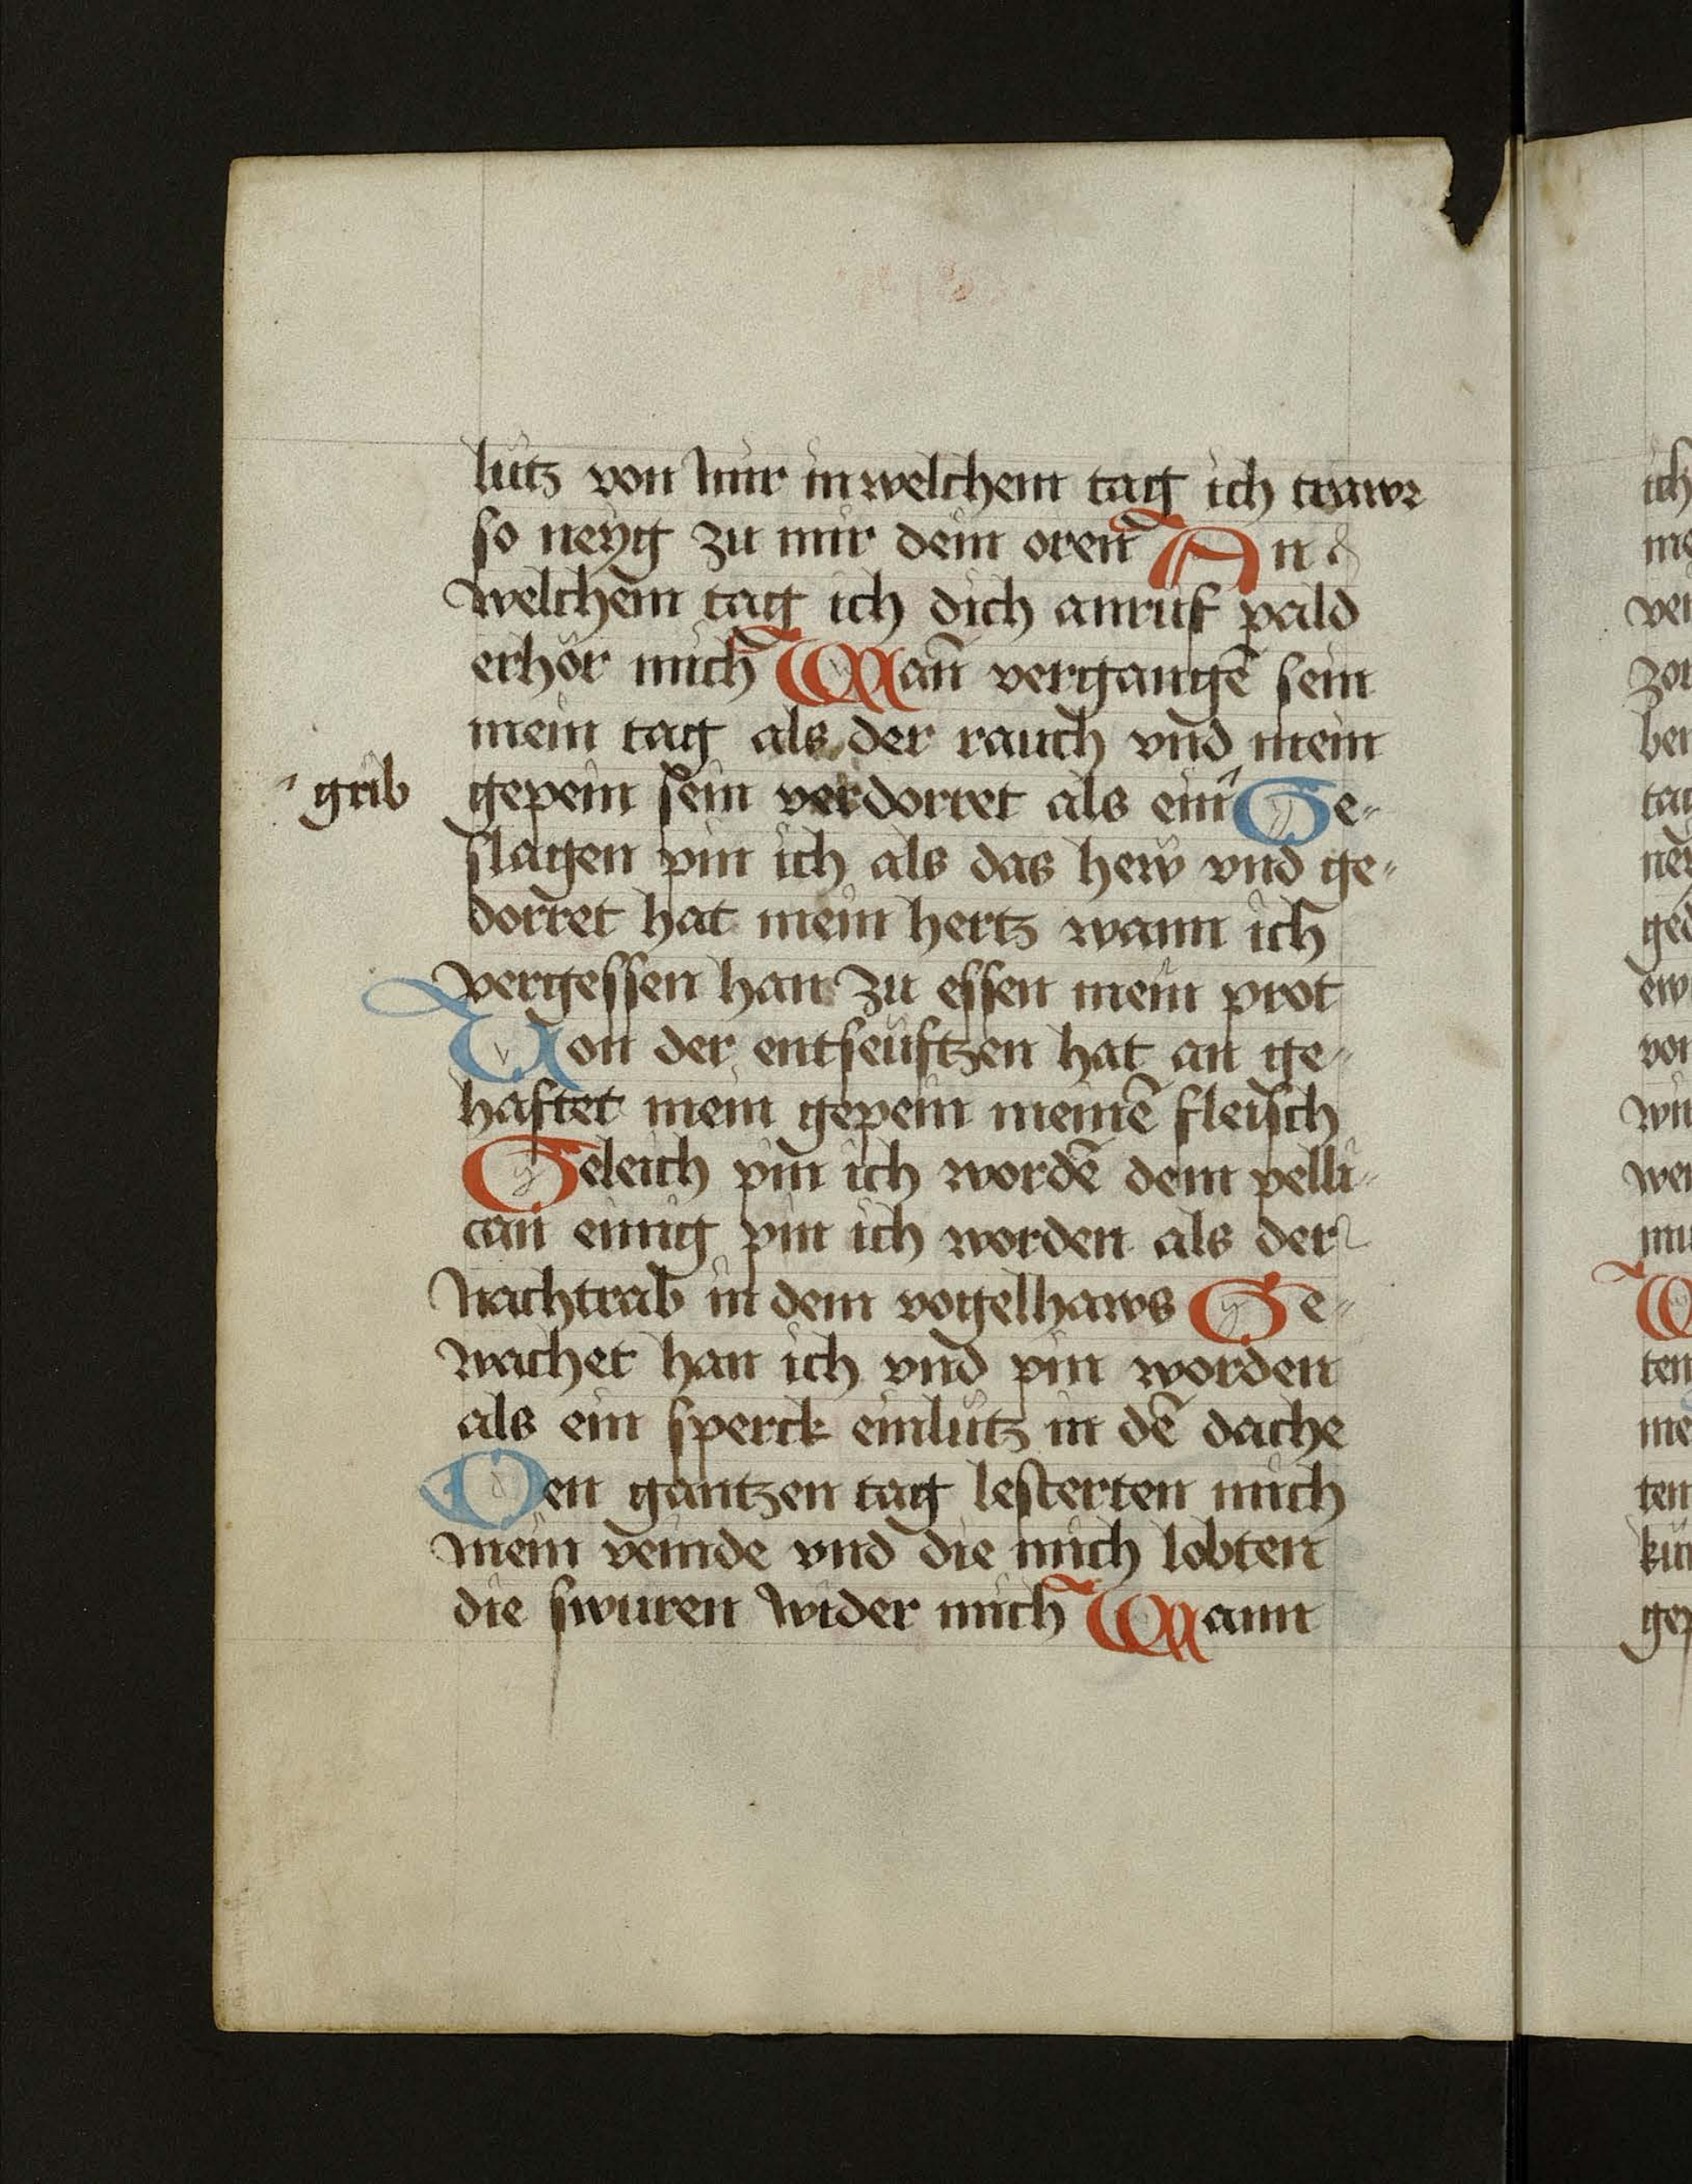 lutz von mir in welchem tag ich trawr
so neyg zu mir dein oren An
welchem tag ich dich anruf pald
erhör mich Wan̄ vergangē sein
mein tag als der rauch vnd mein
grib
gepein sein verdorret als ein Ge-
slagen pin ich als das hew vnd ge-
dorret hat mein hertz wann ich
vergessen han zu essen mein prot
Von der entseuftzen hat an ge-
haftet mein gepein meinē fleisch
Geleich pin ich wordē dem pelli-
can einig pin ich worden als der
Nachtrab in dem vogelhaws Ge-
wachet han ich vnd pin worden
als ein sperck einlutz in dē dache
Den gantzen tag lesterten mich
mein veinde vnd die mich lobten
die swuren wider mich Wann